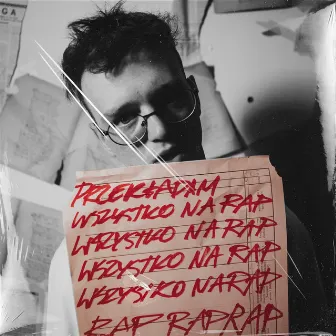 PRZEKŁADAM
WSZYSTKO NA RAP
WSZYSTKO NA RAP
WSZYSTKO NA RAP
WSZYSTKO NA RAP
RAP RAP RAP